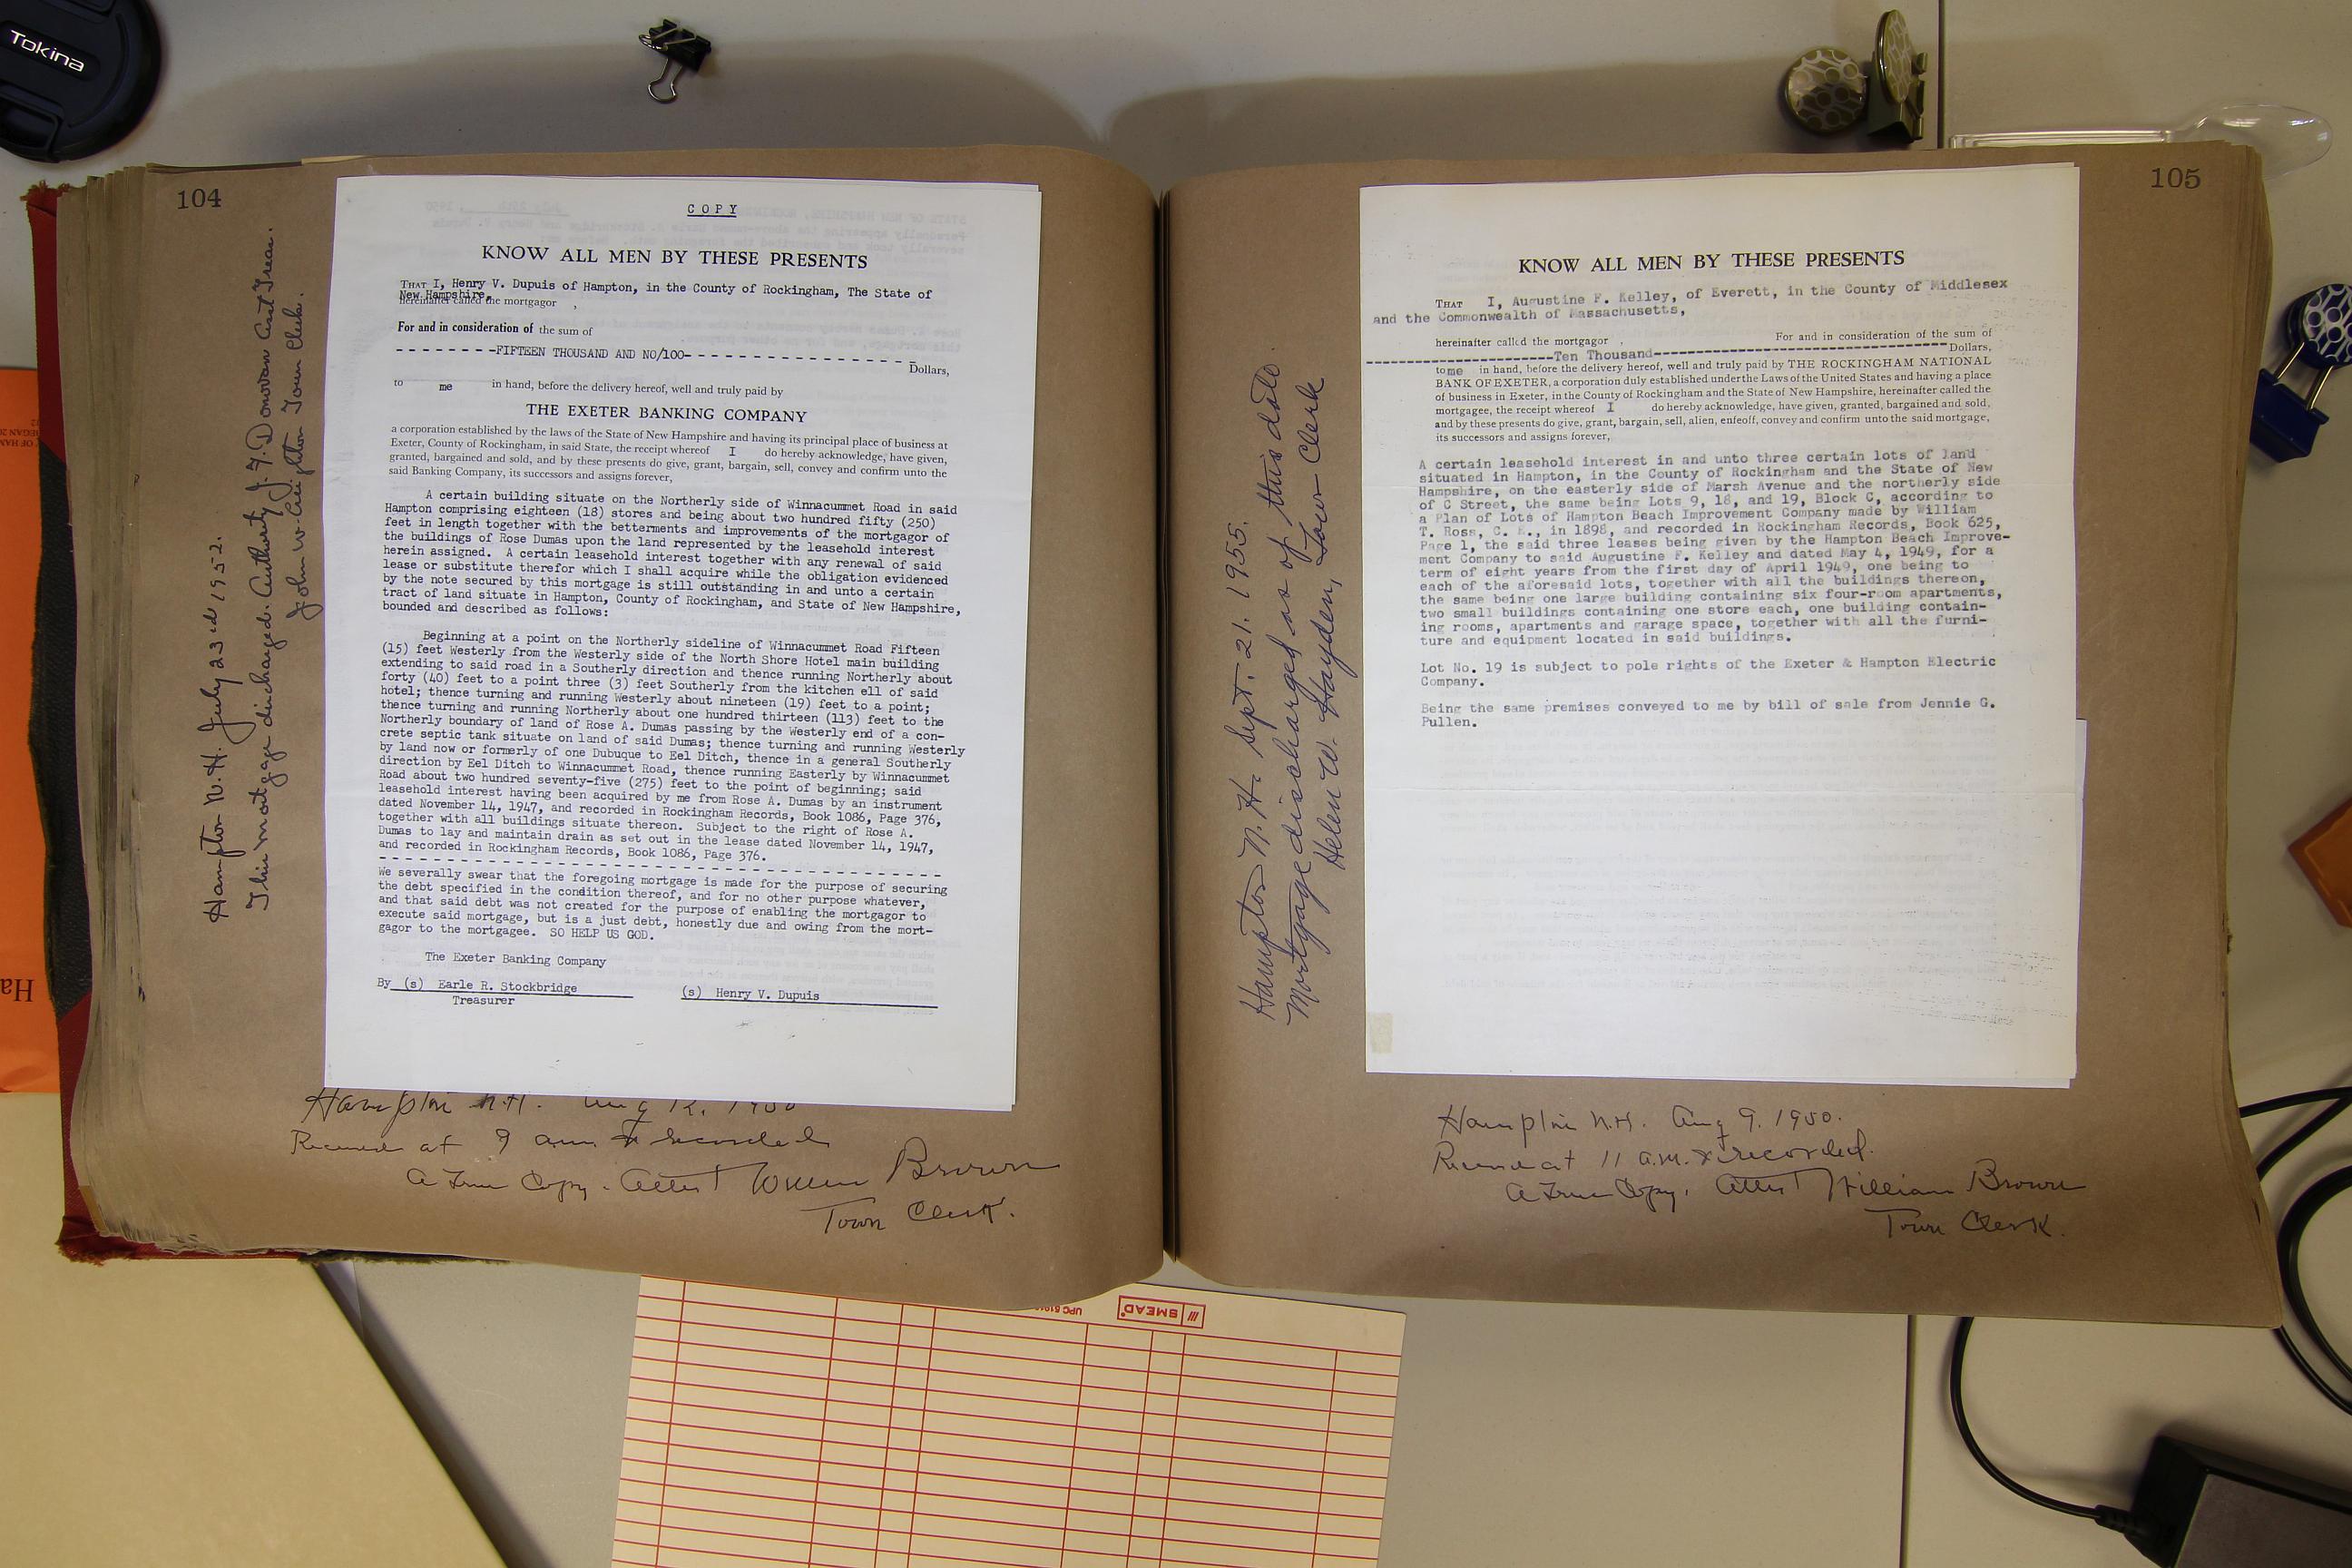 Tokina
104
COPY
KNOW ALL MEN BY THESE PRESENTS
THAT I, Henry V. Dupuis of Hampton, in the County of Rockingham, The State of
New Hampshire,
hereinafter called the mortgagor ,
For and in consideration of the sum of
- - - - - - - -FIFTEEN THOUSAND AND NO/100- - - - - - - - - - - - - - - - - -
Dollars,
to me in hand, before the delivery hereof, well and truly paid by
THE EXETER BANKING COMPANY
a corporation established by the laws of the State of New Hampshire and having its principal place of business at
Exeter, County of Rockingham, in said State, the receipt whereof I do hereby acknowledge, have given,
granted, bargained and sold, and by these presents do give, grant, bargain, sell, convey and confirm unto the
said Banking Company, its successors and assigns forever,
A certain building situate on the Northerly side of Winnacummet Road in said
Hampton comprising eighteen (18) stores and being about two hundred fifty (250)
feet in length together with the betterments and improvements of the mortgagor of
the buildings of Rose Dumas upon the land represented by the leasehold interest
herein assigned. A certain leasehold interest together with any renewal of said
lease or substitute therefor which I shall acquire while the obligation evidenced
by the note secured by this mortgage is still outstanding in and unto a certain
tract of land situate in Hampton, County of Rockingham, and State of New Hampshire,
bounded and described as follows:
Beginning at a point on the Northerly sideline of Winnacummet Road Fifteen
(15) feet Westerly from the Westerly side of the North Shore Hotel main building
extending to said road in a Southerly direction and thence running Northerly about
forty (40) feet to a point three (3) feet Southerly from the kitchen ell of said
hotel; thence turning and running Westerly about nineteen (19) feet to a point;
thence turning and running Northerly about one hundred thirteen (113) feet to the
Northerly boundary of land of Rose A. Dumas passing by the Westerly end of a con-
crete septic tank situate on land of said Dumas; thence turning and running Westerly
by land now or formerly of one Dubuque to Eel Ditch, thence in a general Southerly
direction by Eel Ditch to Winnacummet Road, thence running Easterly by Winnacummet
Road about two hundred seventy-five (275) feet to the point of beginning; said
leasehold interest having been acquired by me from Rose A. Dumas by an instrument
dated November 14, 1947, and recorded in Rockingham Records, Book 1086, Page 376,
together with all buildings situate thereon. Subject to the right of Rose A.
Dumas to lay and maintain drain as set out in the lease dated November 14, 1947,
and recorded in Rockingham Records, Book 1086, Page 376.
We severally swear that the foregoing mortgage is made for the purpose of securing
the debt specified in the condition thereof, and for no other purpose whatever,
and that said debt was not created for the purpose of enabling the mortgagor to
execute said mortgage, but is a just debt, honestly due and owing from the mort-
gagor to the mortgagee. SO HELP US GOD.
The Exeter Banking Company
By (s) Earle R. Stockbridge
Treasurer
(s) Henry V. Dupuis
Hampton N.H. July 23rd 1952.
This mortgage discharged. Authority J. F. Donovan Asst Treas.
John W. Creighton Town Clerk.
Hampton N.H. Aug 12, 1950
Received at 9 am & recorded
A True Copy. Attest William Brown
Town Clerk.
105
KNOW ALL MEN BY THESE PRESENTS
THAT I, Augustine F. Kelley, of Everett, in the County of Middlesex
and the Commonwealth of Massachusetts,
hereinafter called the mortgagor , For and in consideration of the sum of
-----------------------Ten Thousand----------------------------------- Dollars,
to me in hand, before the delivery hereof, well and truly paid by THE ROCKINGHAM NATIONAL
BANK OF EXETER, a corporation duly established under the Laws of the United States and having a place
of business in Exeter, in the County of Rockingham and the State of New Hampshire, hereinafter called the
mortgagee, the receipt whereof I do hereby acknowledge, have given, granted, bargained and sold,
and by these presents do give, grant, bargain, sell, alien, enfeoff, convey and confirm unto the said mortgage,
its successors and assigns forever,
A certain leasehold interest in and unto three certain lots of land
situated in Hampton, in the County of Rockingham and the State of New
Hampshire, on the easterly side of Marsh Avenue and the northerly side
of C Street, the same being Lots 9, 18, and 19, Block C, according to
a Plan of Lots of Hampton Beach Improvement Company made by William
T. Ross, C. E., in 1898, and recorded in Rockingham Records, Book 625,
Page 1, the said three leases being given by the Hampton Beach Improve-
ment Company to said Augustine F. Kelley and dated May 4, 1949, for a
term of eight years from the first day of April 1949, one being to
each of the aforesaid lots, together with all the buildings thereon,
the same being one large building containing six four-room apartments,
two small buildings containing one store each, one building contain-
ing rooms, apartments and garage space, together with all the furni-
ture and equipment located in said buildings.
Lot No. 19 is subject to pole rights of the Exeter & Hampton Electric
Company.
Being the same premises conveyed to me by bill of sale from Jennie G.
Pullen.
Hampton N.H. Sept. 21. 1955.
Mortgage discharged as of this date.
Helen W. Hayden, Town Clerk
Hampton N.H. Aug 9, 1950.
Received at 11 a.m. & recorded.
A True Copy. Attest William Brown
Town Clerk.
SMEAD